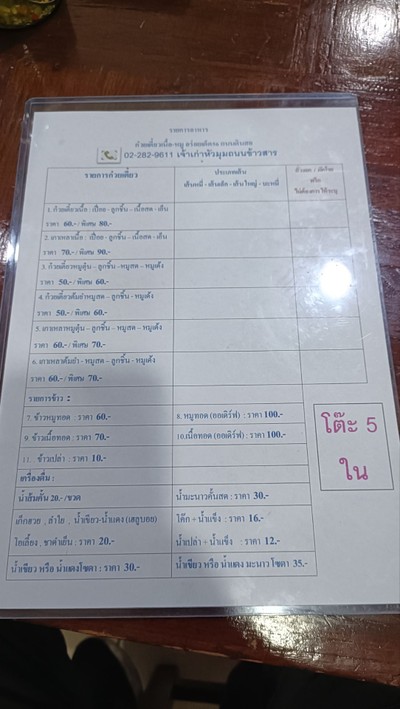 รายการอาหาร
ก๋วยเตี๋ยวเนื้อ-หมู ตรอกมะลิ
02-282-9611 เจ้าเก่าหัวมุมถนนข้าวสาร
รายการก๋วยเตี๋ยว
ประเภทเส้น
เส้นหมี่ - เส้นเล็ก - เส้นใหญ่ - บะหมี่
ไม่ต้องการ ให้ระบุ
1. ก๋วยเตี๋ยวเนื้อ : เปื่อย - ลูกชิ้น – เนื้อสด - เอ็น
ราคา 60.- / พิเศษ 80.-
2. เกาเหลาเนื้อ : เปื่อย - ลูกชิ้น – เนื้อสด - เอ็น
ราคา 70.- / พิเศษ 90.-
3. ก๋วยเตี๋ยวหมูตุ๋น – ลูกชิ้น -หมูสด – หมูเด้ง
ราคา 50.- / พิเศษ 60.-
4. ก๋วยเตี๋ยวต้มยำหมูสด – ลูกชิ้น -หมูเด้ง
ราคา 50.- / พิเศษ 60.-
5. เกาเหลาหมูตุ๋น – ลูกชิ้น -หมูสด – หมูเด้ง
ราคา 60.- / พิเศษ 70.-
6. เกาเหลาต้มยำ - หมูสด – ลูกชิ้น - หมูเด้ง
ราคา 60.- / พิเศษ 70.-
รายการข้าว :
7. ข้าวหมูทอด : ราคา 60.-
8. หมูทอด (ออเดิร์ฟ) : ราคา 100.-
9. ข้าวเนื้อทอด : ราคา 70.-
10.เนื้อทอด (ออเดิร์ฟ) : ราคา 100.-
11. ข้าวเปล่า : ราคา 10.-
เครื่องดื่ม :
น้ำส้มคั้น 20.- /ขวด
น้ำมะนาวคั้นสด : ราคา 30.-
เก็กฮวย , ลำไย , น้ำเขียว-น้ำแดง (เฮลูบอย)
โค๊ก + น้ำแข็ง : ราคา 16.-
โอเลี้ยง , ชาดำเย็น : ราคา 20.-
น้ำเปล่า + น้ำแข็ง : ราคา 12.-
น้ำเขียว หรือ น้ำแดงโซดา : ราคา 30.-
น้ำเขียว หรือ น้ำแดง มะนาว โซดา 35.-
โต๊ะ 5
ใน